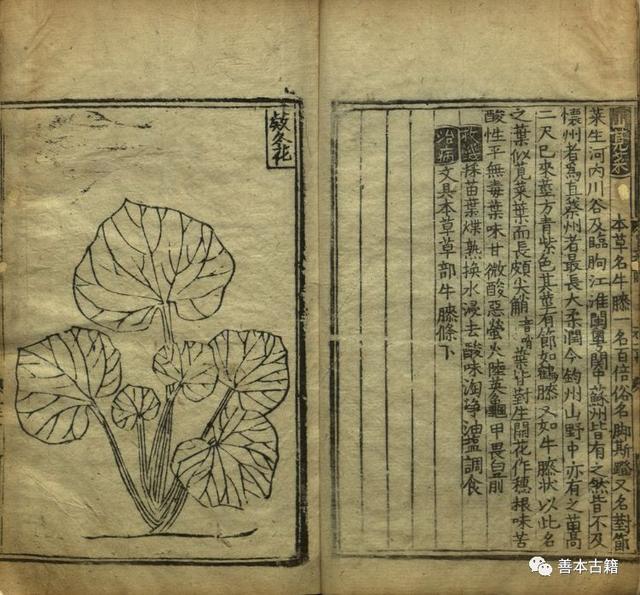 山莧菜 本草名牛膝一名百倍俗名脚斯蹬又名對節
菜生河內川谷及臨朐江淮閩粤關中蘇州皆有之然皆不及
懷州者爲真蔡州者最長大柔潤今鈞州山野中亦有之苗高
二尺已來莖方青紫色其莖有節如鶴膝又如牛膝狀以此名
之葉似莧菜葉而長頗尖艄音哨葉皆對生開花作穗根味苦
酸性平無毒葉味甘微酸惡螢火陸英龜甲畏白前
救飢 採苗葉煠熟換水浸去酸味淘淨油鹽調食
治病 文具本草草部牛膝條下
欵冬花
善本古籍